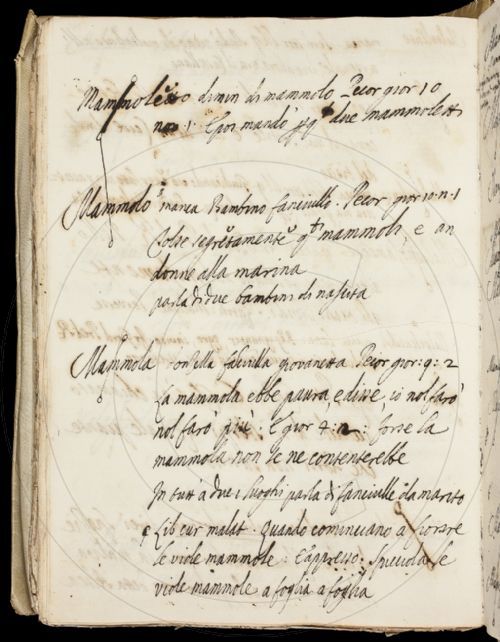 Mammoletto dimin di mammolo Pecor gior 10
nov. 1. E poi mando due mammoletti
Mammolo manca Bambino fanciullo. Pecor gior 10. n. 1
Tolse segretamente mammoli, e an
donne alla marina
parla di due bambini di nascita
Mammola fanciulla giovanetta Pecor gior: 9: 2
La mammola ebbe paura, e disse io nol farò
nol farò più: E gior 4: n 2: forse la
mammola non se ne contenterebbe
In tutt' a due i luoghi parla di fanciulle da marito
Lib cur malat. quando cominciano a fiorire
le viole mammole: E appresso: Spicciola le
viole mammole a foglia a foglia